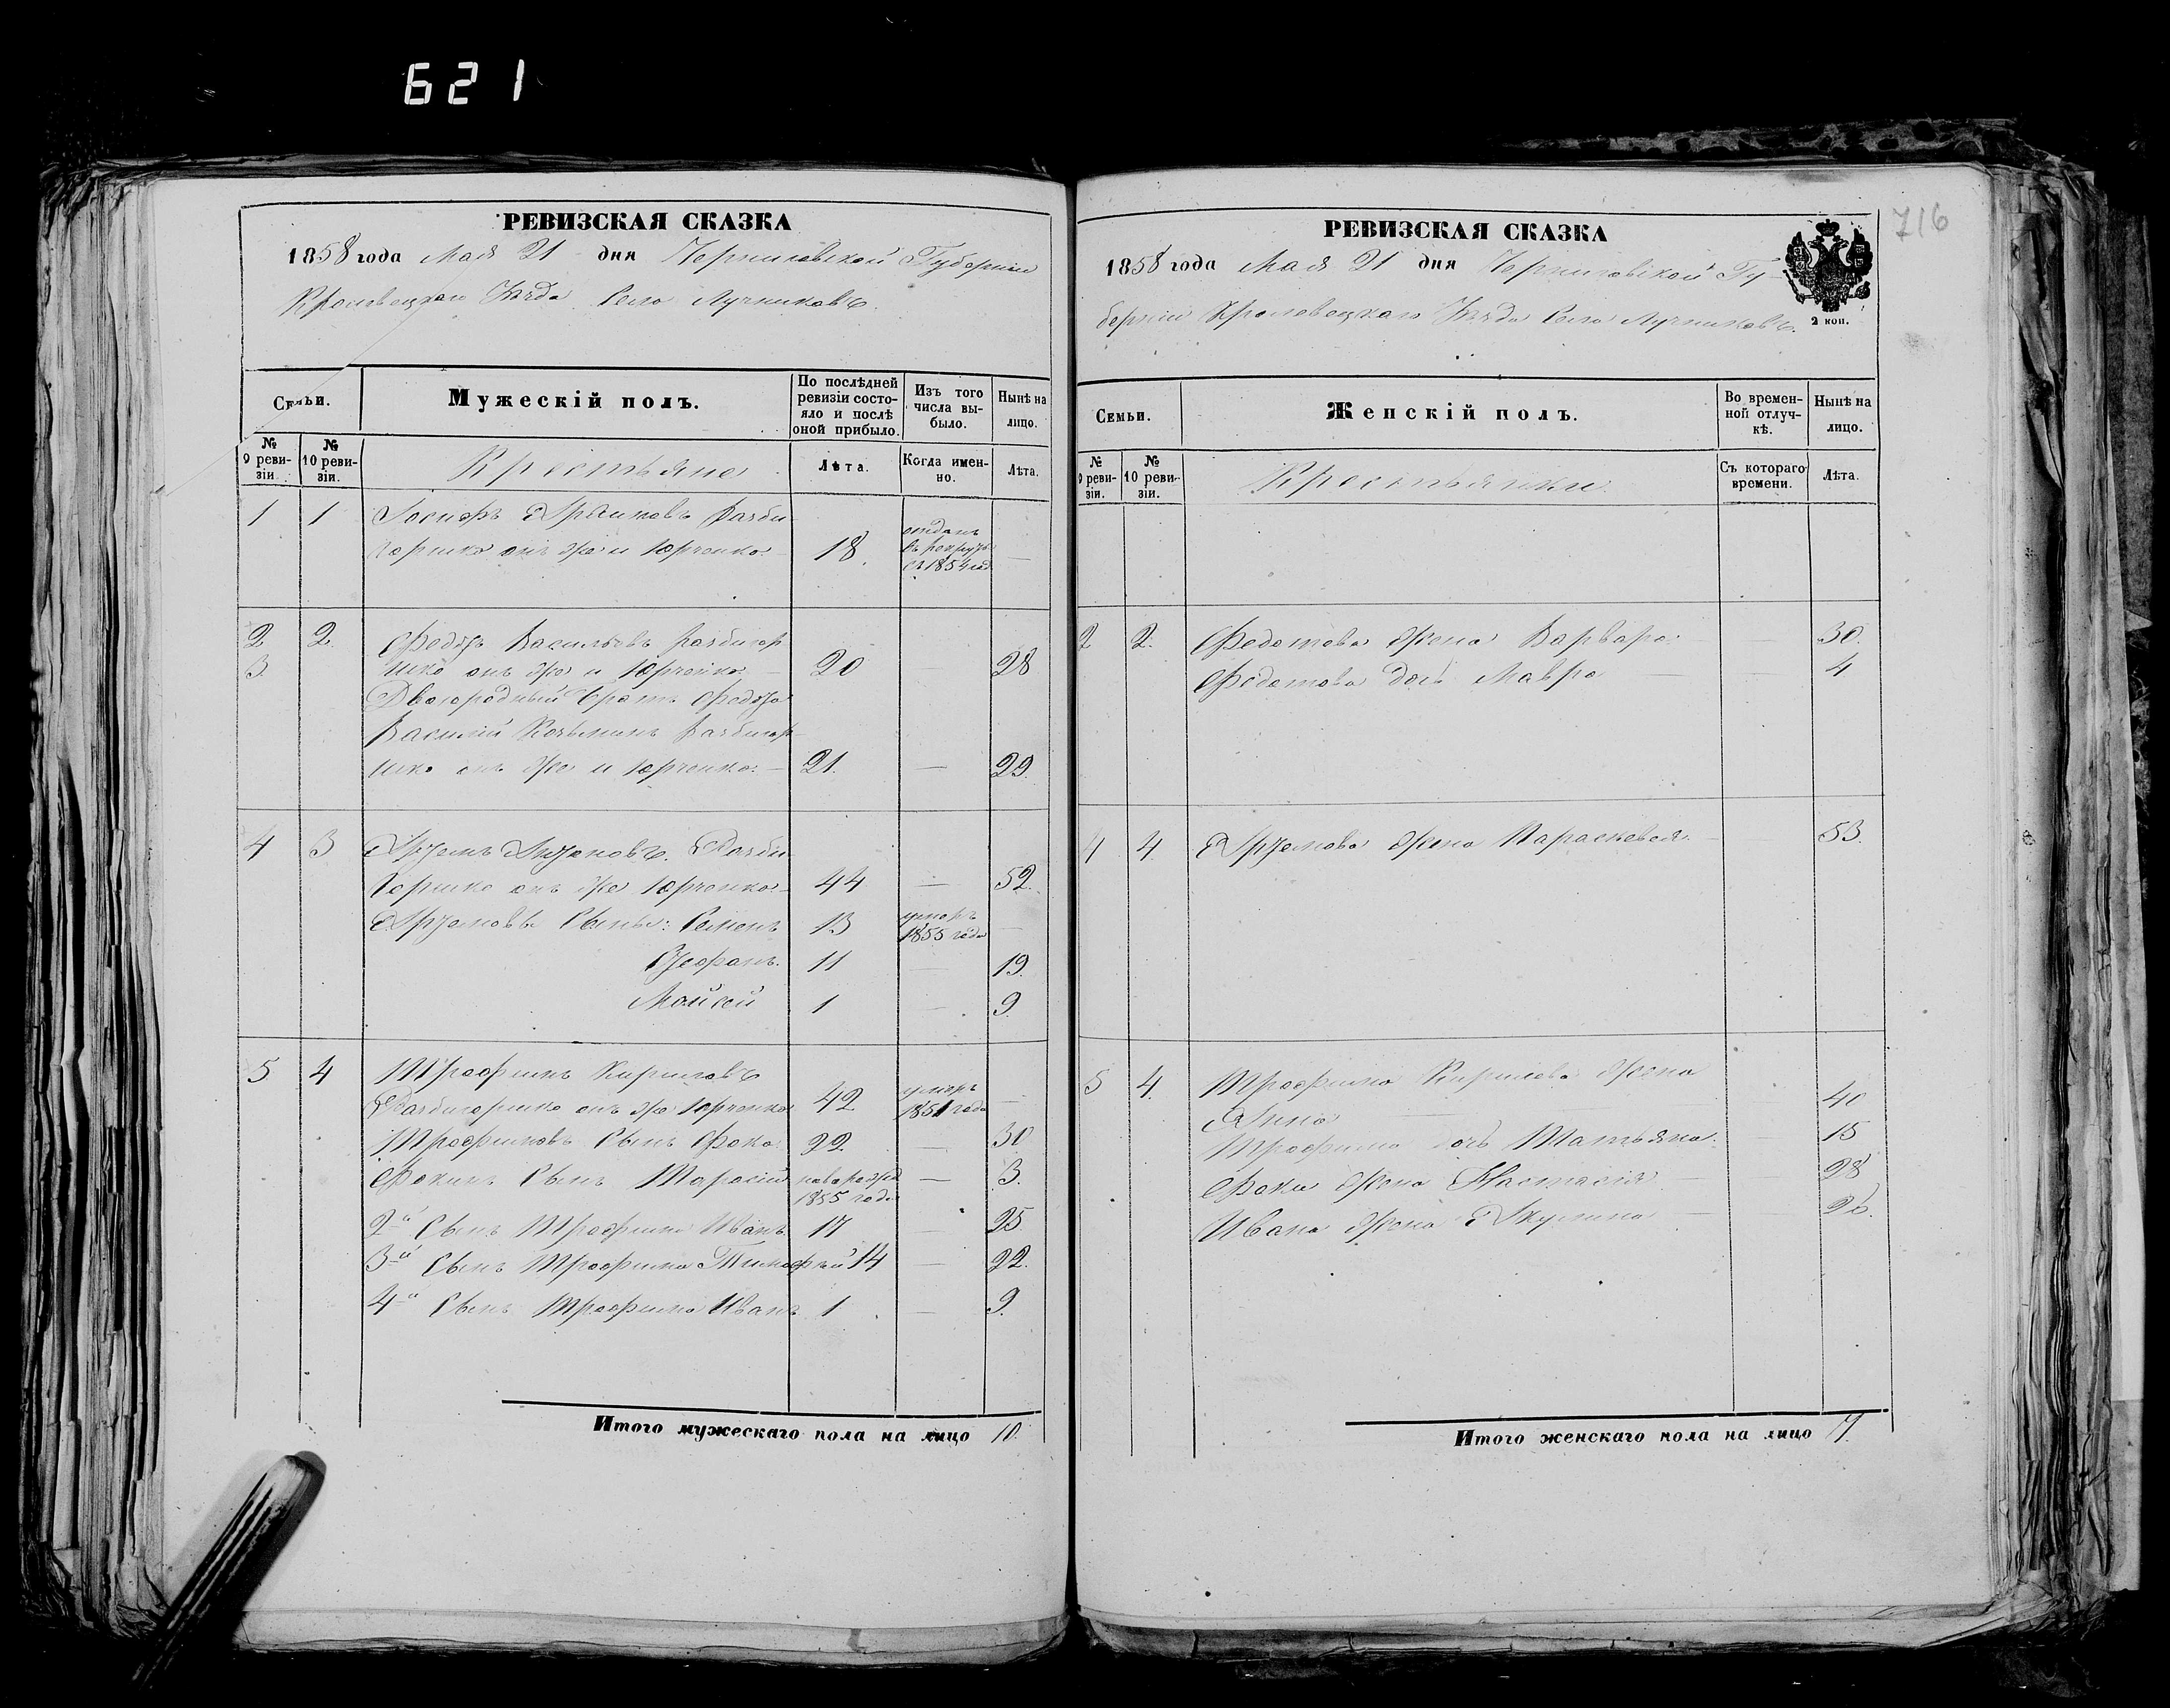 621
РЕВИЗСКАЯ СКАЗКА
1858 года Мая 21 дня Черниговской Губернии
Кролевецкаго Уѣзда Село Лучниковъ.
Семьи.
Мужескій полъ.
По послѣдней ревизіи состояло и послѣ оной прибыло.
Изъ того числа выбыло.
Нынѣ на лицо.
№ 9 ревизіи.
№ 10 ревизіи.
Крестьяне
Лѣта.
Когда именно.
Лѣта.
1 1
18. отданъ въ рекруты въ 1854 год —
горшко онъ же и Юрченко
2 2 Федотъ Васильевъ
3 шко онъ же и Юрченко — 20 — 28
Двоюродный братъ Федота
Василій Козьминъ
шко онъ же и Юрченко — 21. — 29.
4 3
горшко онъ же Юрченко — 44 — 52.
Артемовы Сыны: Семенъ 13 умеръ 1855 года —
Стефанъ. 11 — 19.
Мойсей 1 — 9
5 4 Трофимъ Кириловъ
онъ же Юрченко 42 умеръ 1851 года —
Трофимовъ Сынъ Фока 22. — 30
Фокинъ Сынъ Тарасій новорожд 1855 года — 3.
2-й Сынъ Трофима Иванъ. 17 — 25
3-й Сынъ Трофима Тимофей 14 — 22.
4-й Сынъ Трофима Иванъ 1 — 9.
Итого мужескаго пола на лицо 10.
716
РЕВИЗСКАЯ СКАЗКА
1858 года Мая 21 дня Черниговской Гу-
берніи Кролевецкаго Уѣзда Село Лучниковъ.
2 коп.
Семьи.
Женскій полъ.
Во временной отлучкѣ.
Нынѣ на лицо.
№ 9 ревизіи.
№ 10 ревизіи.
Крестьянки
Съ котораго времени.
Лѣта.
2 2. Федотова жена Варвара — 30.
Федотова дочь Мавра — 4
4 4. Артемова жена Параскевея — 53.
5 4. Трофима Кирилова жена
Анна 40
Трофима дочь Татьяна — 15
Фоки жена Настасія — 28
Ивана жена Акулина — 26.
Итого женскаго пола на лицо 7.